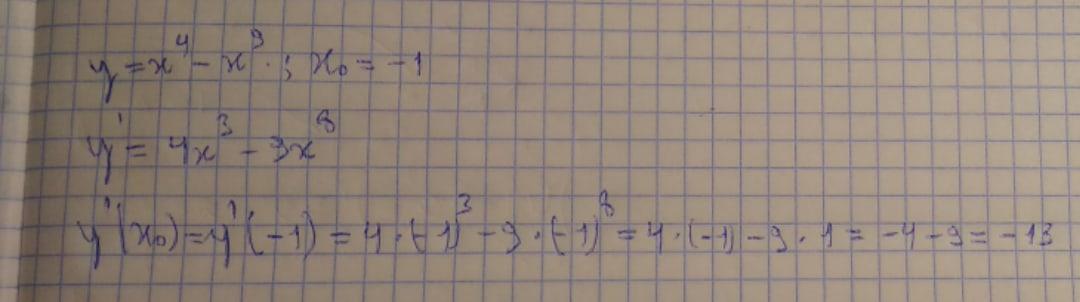 y = x⁴ - x⁹ · ; x₀ = -1
y' = 4x³ - 9x⁸
y'(x₀) = y'(-1) = 4 · (-1)³ - 9 · (-1)⁸ = 4 · (-1) - 9 · 1 = -4 - 9 = -13